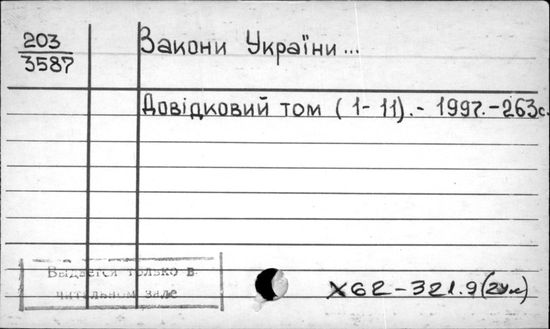 203
3587
Закони України...
Довідковий том (1-11).- 1997.-263с.
Выдается только в
читальном зале
Х62-321.9